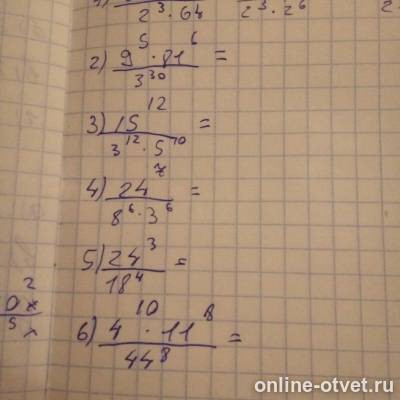 2³·64 2³·2⁶ 2
2) 9⁵·81⁶ / 3³⁰ =
3) 15¹² / 3¹²·5¹⁰ =
4) 24⁷ / 8⁶·3⁶ =
5) 24³ / 18⁴ =
6) 4¹⁰·11⁸ / 44⁸ =
online-otvet.ru